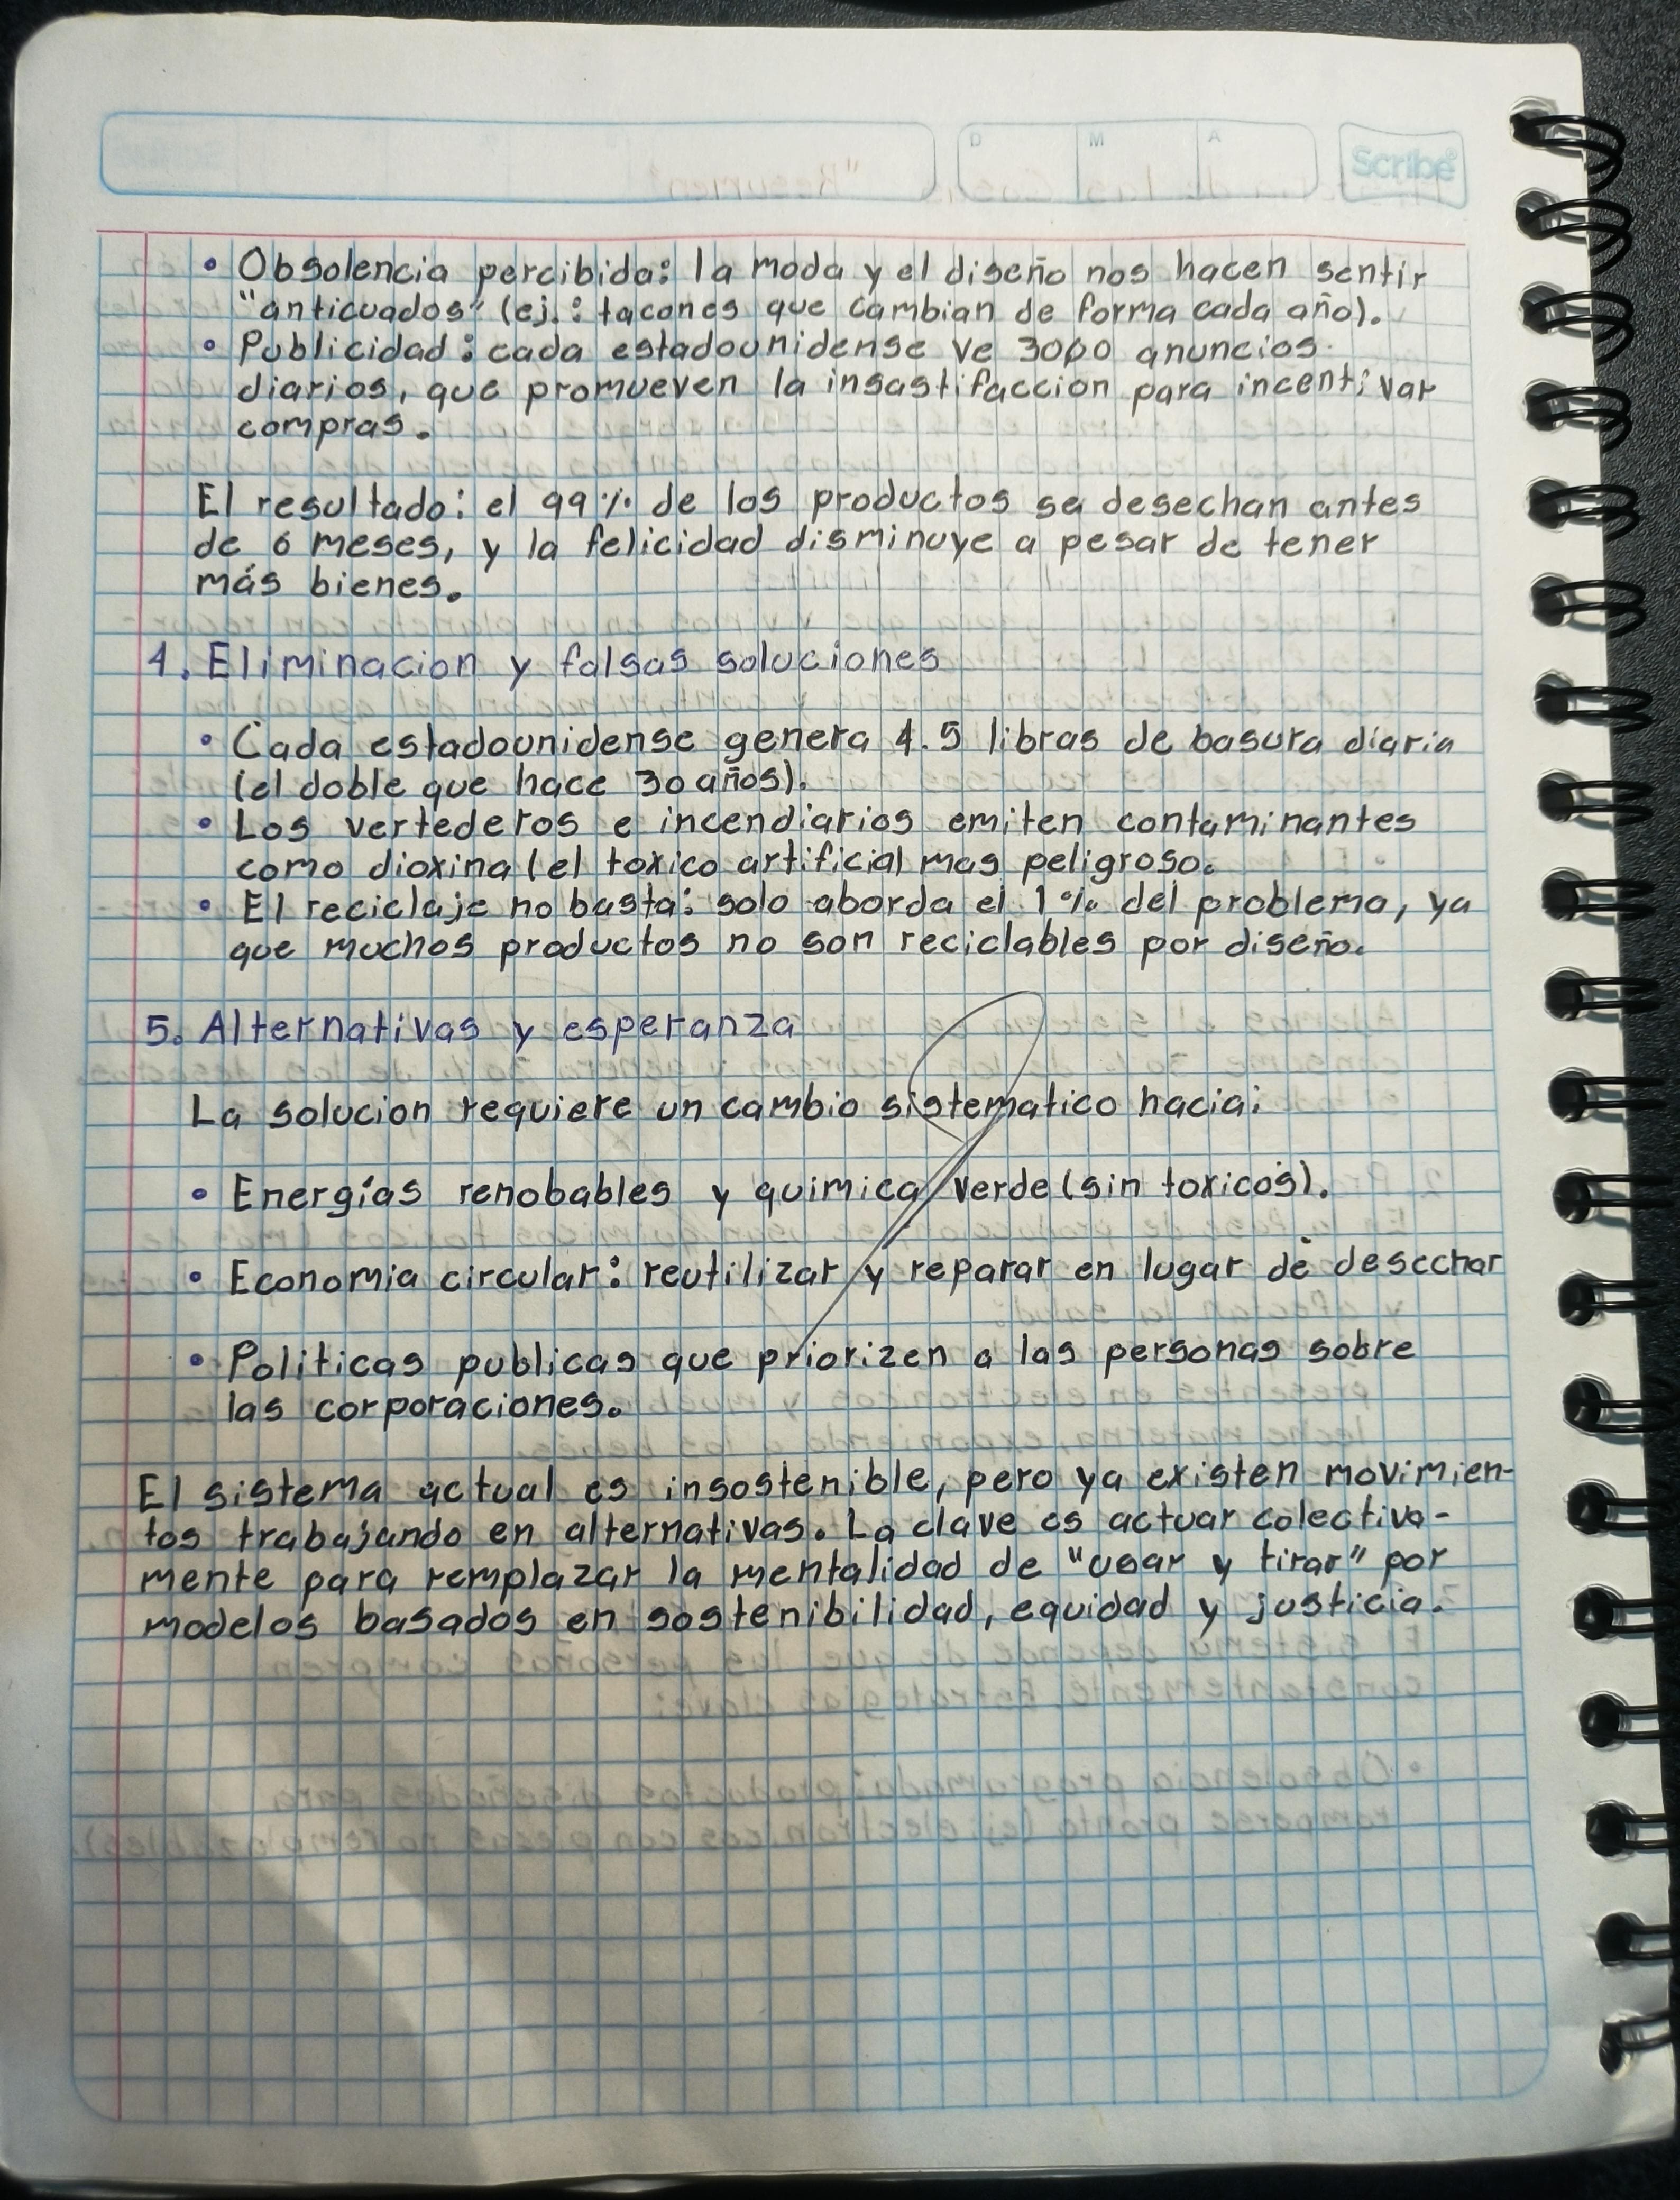 D M A Scribe
• Obsolencia percibida: la moda y el diseño nos hacen sentir
"anticuados" (ej.: tacones que cambian de forma cada año).
• Publicidad: cada estadounidense ve 3000 anuncios
diarios, que promueven la insastifaccion para incentivar
compras.
El resultado: el 99% de los productos se desechan antes
de 6 meses, y la felicidad disminuye a pesar de tener
más bienes.
4. Eliminacion y falsas soluciones
• Cada estadounidense genera 4.5 libras de basura diaria
(el doble que hace 30 años).
• Los vertederos e incendiarios emiten contaminantes
como dioxina (el toxico artificial mas peligroso.
• El reciclaje no basta: solo aborda el 1% del problema, ya
que muchos productos no son reciclables por diseño.
5. Alternativas y esperanza
La solucion requiere un cambio sistematico hacia:
• Energías renobables y quimica verde (sin toxicos).
• Economia circular: reutilizar y reparar en lugar de desechar
• Politicas publicas que priorizen a las personas sobre
las corporaciones.
El sistema actual es insostenible, pero ya existen movimien-
tos trabajando en alternativas. La clave es actuar colectiva-
mente para remplazar la mentalidad de "usar y tirar" por
modelos basados en sostenibilidad, equidad y justicia.